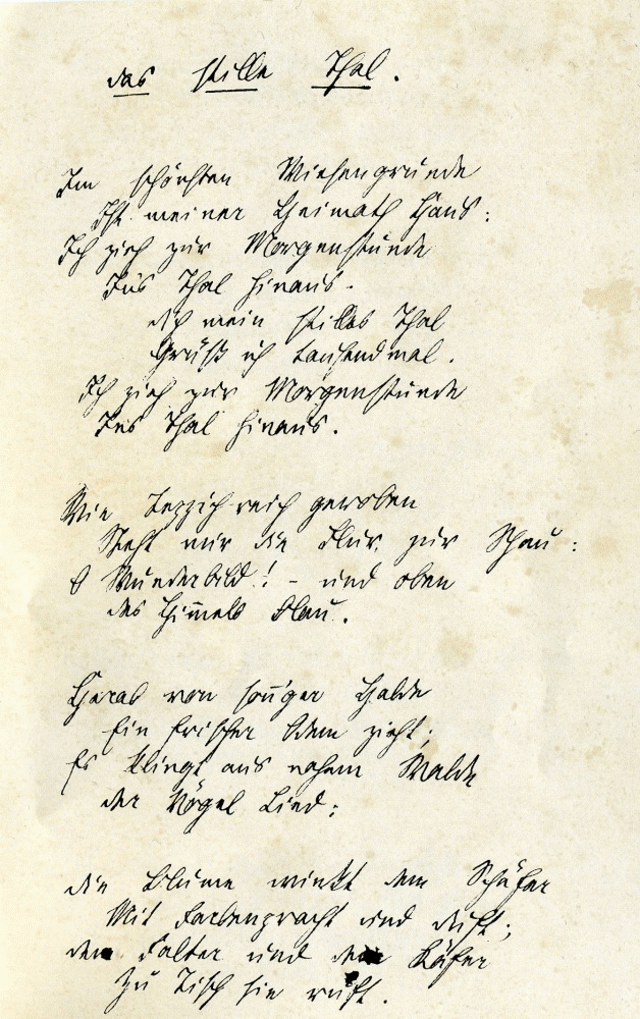 das stille Thal.
Im schönsten Wiesengrunde
Ist meiner Heimath Haus:
Ich zieh zur Morgenstunde
Ins Thal hinaus.
Dich mein stilles Thal
Grüß ich tausendmal.
Ich zieh zur Morgenstunde
Ins Thal hinaus.
Wie Teppich reich gewoben
Steht mir die Flur zur Schau:
O Wunderbild! - und oben
des Him̅els Blau.
Herab von son̅'ger Halde
Ein frischer Odem zieht;
Es klingt aus nahem Walde
der Vögel Lied;
die Blume winkt dem Schäfer
Mit Farbenpracht und Duft;
den Falter und den Käfer
Zu Tisch sie ruft.